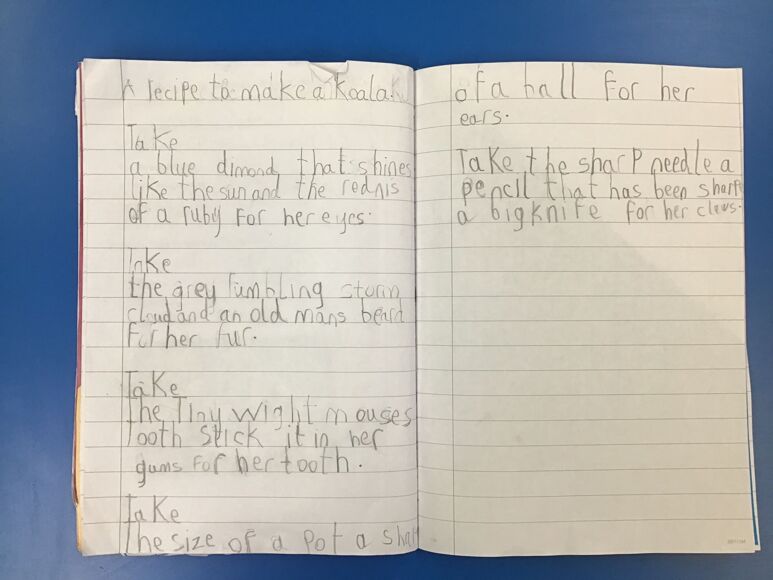 A recipe to make a Koala
Take
a blue dimond that shines
like the sun and the rednis
of a ruby For her eyes.
Take
the grey rumbling storm
cloud and an old mans beard
For her fur.
Take
The Tiny wight mouses
Tooth Stick it in her
gums For her tooth.
Take
The size of a Pot a shap
of a ball For her
ears.
Take the sharp needle a
pencil that has been sharp
a big knife for her claws.